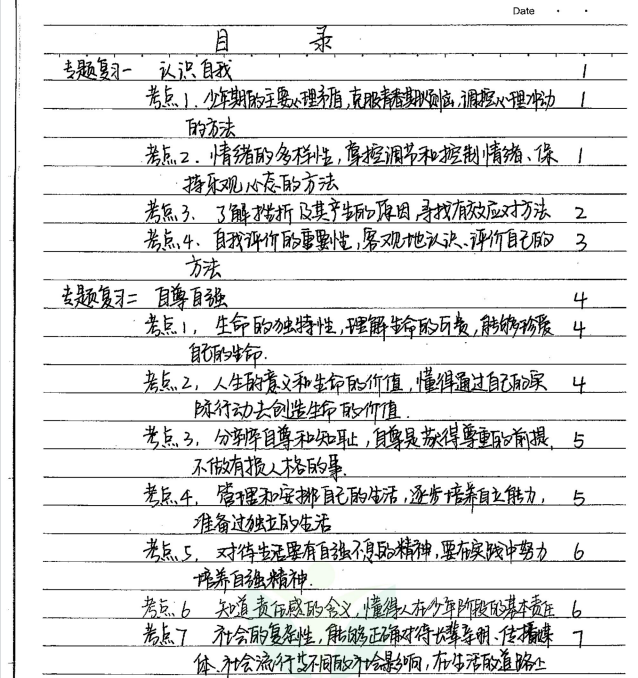 Date
目 录
专题复习一 认识自我 1
考点1、少年期的主要心理矛盾,克服青春期烦恼,调控心理冲动 1
的方法
考点2. 情绪的多样性,掌控调节和控制情绪、保 1
持乐观心态的方法
考点3、了解挫折及其产生的原因,寻找有效应对方法 2
考点4、自我评价的重要性,客观地认识、评价自己的 3
方法
专题复习二 自尊自强 4
考点1, 生命的独特性,理解生命的可贵,能够珍爱 4
自己的生命.
考点2, 人生的意义和生命的价值,懂得通过自己的实 4
际行动去创造生命的价值.
考点3, 分别自尊和知耻,自尊是获得尊重的前提, 5
不做有损人格的事.
考点4, 管理和安排自己的生活,逐步培养自立能力, 5
准备过独立的生活
考点5, 对待生活要有自强不息的精神,要在实践中努力 6
培养自强精神.
考点6 知道责任感的含义,懂得人在少年阶段的基本责任 6
考点7 社会的复杂性,能够正确对待长辈亲朋、传播媒 7
体、社会流行等不同的社会影响,在生活的道路上